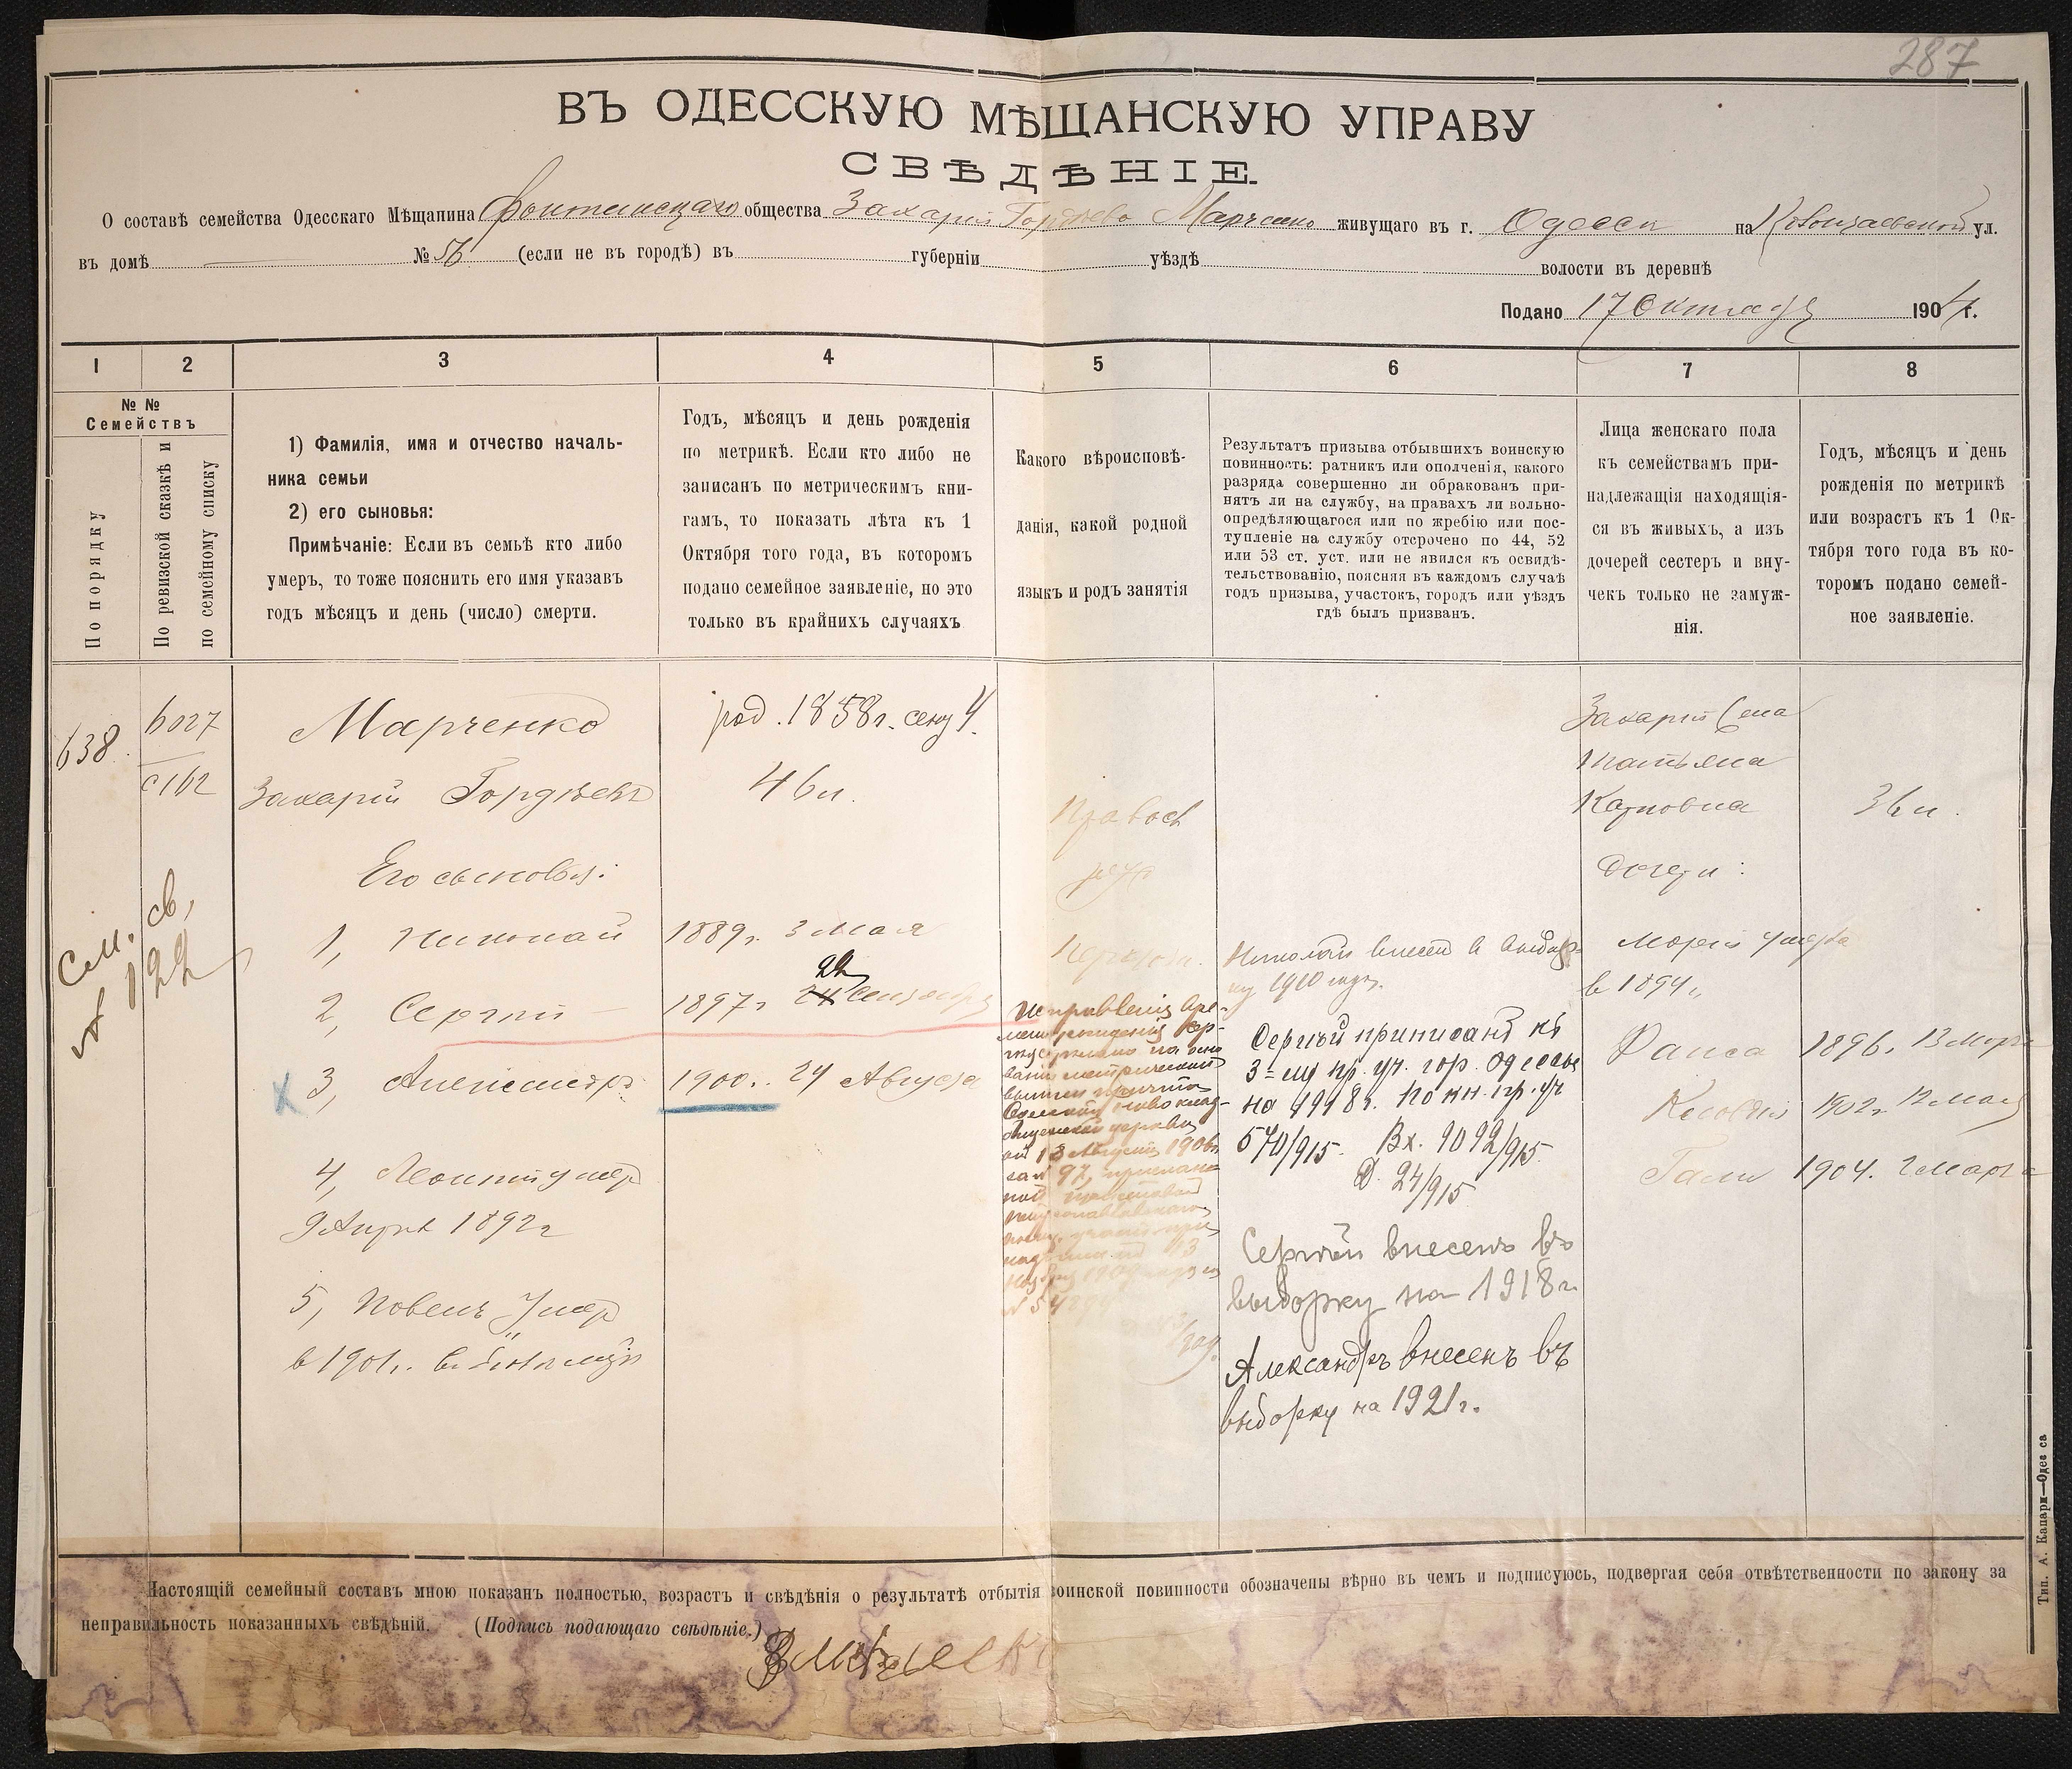 287
ВЪ ОДЕССКУЮ МѢЩАНСКУЮ УПРАВУ
СВѢДѢНІЕ.
О составѣ семейства Одесскаго Мѣщанина общества Захарія Гордѣева Марченко живущаго въ г. Одессѣ на ул.
въ домѣ № 56 (если не въ городѣ) въ губерніи уѣздѣ волости въ деревнѣ
Подано 17 Октября 1904 г.
1 2 3 4 5 6 7 8
№ №
Семействъ
По порядку
По ревизской сказкѣ и
по семейному списку
1) Фамилія, имя и отчество началь-
ника семьи
2) его сыновья:
Примѣчаніе: Если въ семьѣ кто либо
умеръ, то тоже пояснить его имя указавъ
годъ мѣсяцъ и день (число) смерти.
Годъ, мѣсяцъ и день рожденія
по метрикѣ. Если кто либо не
записанъ по метрическимъ кни-
гамъ, то показать лѣта къ 1
Октября того года, въ которомъ
подано семейное заявленіе, но это
только въ крайнихъ случаяхъ
Какого вѣроисповѣ-
данія, какой родной
языкъ и родъ занятія
Результатъ призыва отбывшихъ воинскую
повинность: ратникъ или ополченія, какого
разряда совершенно ли обракованъ при-
нятъ ли на службу, на правахъ ли вольно-
опредѣляющагося или по жребію или пос-
тупленіе на службу отсрочено по 44, 52
или 53 ст. уст. или не явился къ освидѣ-
тельствованію, поясняя въ каждомъ случаѣ
годъ призыва, участокъ, городъ или уѣздъ
гдѣ былъ призванъ.
Лица женскаго пола
къ семействамъ при-
надлежащія находящія-
ся въ живыхъ, а изъ
дочерей сестеръ и вну-
чекъ только не замуж-
нія.
Годъ, мѣсяцъ и день
рожденія по метрикѣ
или возрастъ къ 1 Ок-
тября того года въ ко-
торомъ подано семей-
ное заявленіе.
638.
6027
с 162
См. св,
№ 122
Марченко
Захарій Гордѣевъ
род. 1858 г. сент 4.
46 л.
Его сыновья:
1, Николай 1889 г. 3 Мая
22
2, Сергій 1897 г 24 Сентября
3, Александръ 1900 г. 24 Августа
4, Леонтій умер
9 Апрѣл 1892 г
5, Повелъ Умер
в 1901 г.
Правосл
рус
Исправленіе вре-
мени рожденія Сер-
гія сдѣлано на осно
ваніи метрической
выписи причта
Одесской ново клад-
бищенской церкви
от 13 Августа 1906 г.
за № 97,
Николай внесен в выбор-
ку 1910 года.
Сергѣй приписанъ къ
3=му пр. уч. гор. Одессы
на 1918 г. По кн. пр. уч
570/915. Вх. 9092/915.
Д. 24/915
Сергѣй внесенъ въ
выборку на 1918 г.
Александръ внесенъ въ
выборку на 1921 г.
Захарія Жена
Татьяна
Карповна 36 л.
Дочери:
Марія умерла
в 1894 г.
Раиса 1896 г. 13 Марта
1902 г. 12 Мая
1904. 2 Марта
Настоящій семейный составъ мною показанъ полностью, возрастъ и свѣдѣнія о результатѣ отбытія воинской повинности обозначены вѣрно въ чемъ и подписуюсь, подвергая себя отвѣтственности по закону за
неправильность показанныхъ свѣдѣній. (Подпись подающаго свѣдѣніе.)
Тип. А. Капари—Одесса